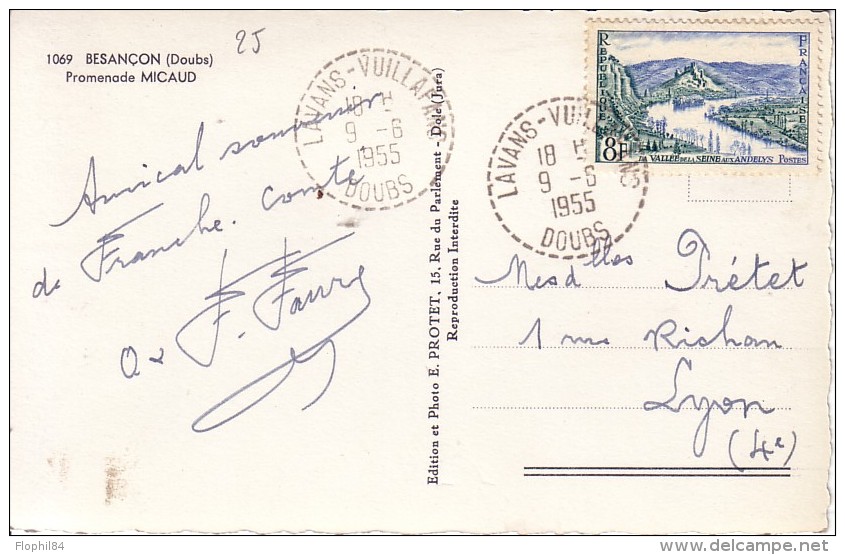 1069 BESANÇON (Doubs)
Promenade MICAUD
25
Amical souvenir
de Franche-comté
F. Faure
LAVANS-VUILLAFANS
18 H
9 - 6
1955
DOUBS
Edition et Photo E. PROTET, 15, Rue du Parlement - Dole (Jura)
Reproduction Interdite
LAVANS-VUILLAFANS
18 H
9 - 6
1955
DOUBS
REPUBLIQUE
FRANCAISE
8F
LA VALLEE DE LA SEINE AUX ANDELYS POSTES
Mesdlles Prétet
1 rue Richan
Lyon
(4e)
Flophil84
www.delcampe.net